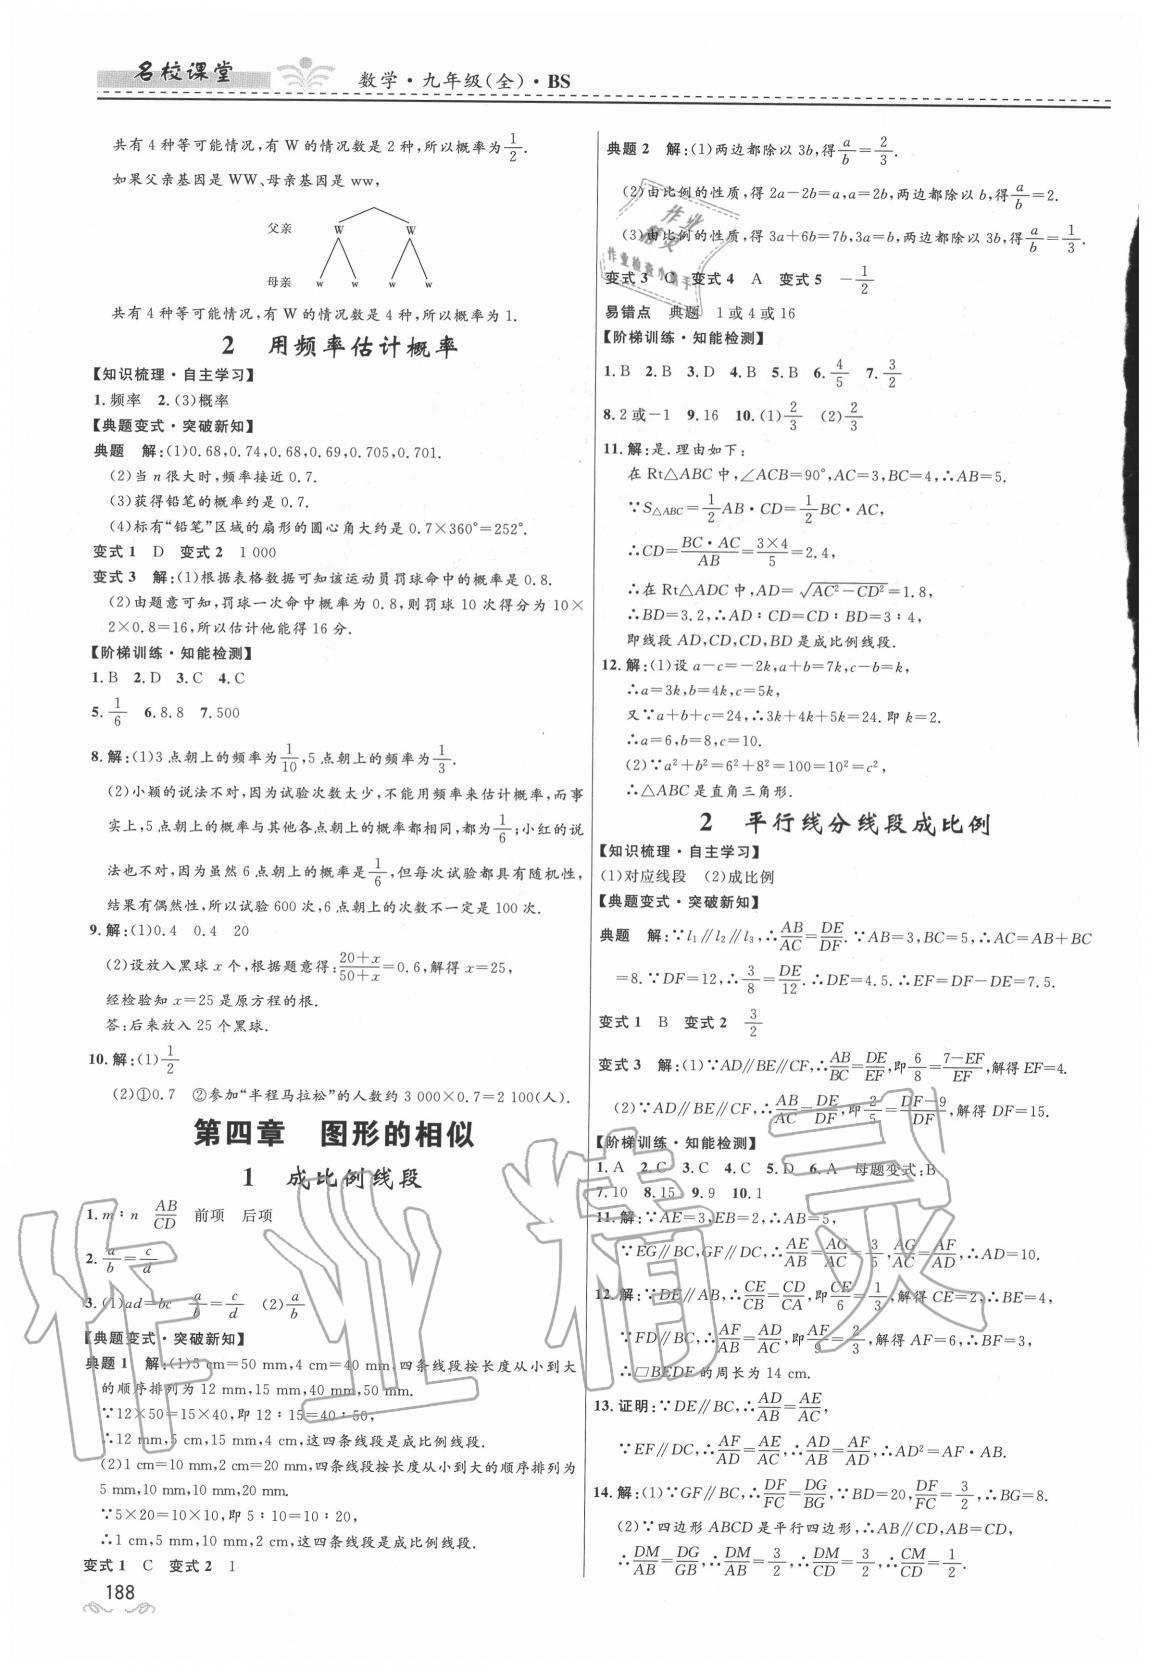 名校课堂
数学·九年级(全)·BS
共有4种等可能情况,有W的情况数是2种,所以概率为1/2.
如果父亲基因是WW、母亲基因是ww,
父亲 W W
母亲 w w w w
共有4种等可能情况,有W的情况数是4种,所以概率为1.
2 用频率估计概率
【知识梳理·自主学习】
1.频率 2.(3)概率
【典题变式·突破新知】
典题 解:(1)0.68,0.74,0.68,0.69,0.705,0.701.
(2)当n很大时,频率接近0.7.
(3)获得铅笔的概率约是0.7.
(4)标有“铅笔”区域的扇形的圆心角大约是0.7×360°=252°.
变式1 D 变式2 1 000
变式3 解:(1)根据表格数据可知该运动员罚球命中的概率是0.8.
(2)由题意可知,罚球一次命中概率为0.8,则罚球10次得分为10×
2×0.8=16,所以估计他能得16分.
【阶梯训练·知能检测】
1.B 2.D 3.C 4.C
5.1/6 6.8.8 7.500
8.解:(1)3点朝上的频率为1/10,5点朝上的频率为1/3.
(2)小颖的说法不对,因为试验次数太少,不能用频率来估计概率,而事
实上,5点朝上的概率与其他各点朝上的概率都相同,都为1/6;小红的说
法也不对,因为虽然6点朝上的概率是1/6,但每次试验都具有随机性,
结果有偶然性,所以试验600次,6点朝上的次数不一定是100次.
9.解:(1)0.4 0.4 20
(2)设放入黑球x个,根据题意得:(20+x)/(50+x)=0.6,解得x=25,
经检验知x=25是原方程的根.
答:后来放入25个黑球.
10.解:(1)1/2
(2)①0.7 ②参加“半程马拉松”的人数约3 000×0.7=2 100(人).
第四章 图形的相似
1 成比例线段
1.m∶n AB/CD 前项 后项
2.a/b=c/d
3.(1)ad=bc a/b=c/d (2)a/b
【典题变式·突破新知】
典题1 解:(1)5 cm=50 mm,4 cm=40 mm,四条线段按长度从小到大
的顺序排列为12 mm,15 mm,40 mm,50 mm.
∵12×50=15×40,即12∶15=40∶50,
∴12 mm,5 cm,15 mm,4 cm,这四条线段是成比例线段.
(2)1 cm=10 mm,2 cm=20 mm,四条线段按长度从小到大的顺序排列为
5 mm,10 mm,10 mm,20 mm.
∵5×20=10×10,即5∶10=10∶20,
∴1 cm,5 mm,10 mm,2 cm,这四条线段是成比例线段.
变式1 C 变式2 1
188
典题2 解:(1)两边都除以3b,得a/b=2/3.
(2)由比例的性质,得2a-2b=a,a=2b,两边都除以b,得a/b=2.
(3)由比例的性质,得3a+6b=7b,3a=b,两边都除以3b,得a/b=1/3.
变式3 C 变式4 A 变式5 -1/2
易错点 典题 1或4或16
【阶梯训练·知能检测】
1.B 2.B 3.D 4.B 5.B 6.4/5 7.3/2
8.2或-1 9.16 10.(1)2/3 (2)2/3
11.解:是.理由如下:
在Rt△ABC中,∠ACB=90°,AC=3,BC=4,∴AB=5.
∵S△ABC=1/2AB·CD=1/2BC·AC,
∴CD=BC·AC/AB=3×4/5=2.4,
∴在Rt△ADC中,AD=√(AC²-CD²)=1.8,
∴BD=3.2,∴AD∶CD=CD∶BD=3∶4,
即线段AD,CD,CD,BD是成比例线段.
12.解:(1)设a-c=-2k,a+b=7k,c-b=k,
∴a=3k,b=4k,c=5k,
又∵a+b+c=24,∴3k+4k+5k=24.即k=2.
∴a=6,b=8,c=10.
(2)∵a²+b²=6²+8²=100=10²=c²,
∴△ABC是直角三角形.
2 平行线分线段成比例
【知识梳理·自主学习】
(1)对应线段 (2)成比例
【典题变式·突破新知】
典题 解:∵l₁∥l₂∥l₃,∴AB/AC=DE/DF.∵AB=3,BC=5,∴AC=AB+BC
=8.∵DF=12,∴3/8=DE/12.∴DE=4.5.∴EF=DF-DE=7.5.
变式1 B 变式2 3/2
变式3 解:(1)∵AD∥BE∥CF,∴AB/BC=DE/EF,即6/8=(7-EF)/EF,解得EF=4.
(2)∵AD∥BE∥CF,∴AB/AC=DE/DF,即2/5=(DF-9)/DF,解得DF=15.
【阶梯训练·知能检测】
1.A 2.C 3.C 4.C 5.D 6.A 母题变式:B
7.10 8.15 9.9 10.1
11.解:∵AE=3,EB=2,∴AB=5,
∵EG∥BC,GF∥DC,∴AE/AB=AG/AC=3/5,AG/AC=AF/AD,∴AD=10.
12.解:∵DE∥AB,∴CE/CB=CD/CA,即CE/6=1/3,解得CE=2,∴BE=4,
∵FD∥BC,∴AF/AB=AD/AC,即AF/9=2/3,解得AF=6,∴BF=3,
∴□BEDF的周长为14 cm.
13.证明:∵DE∥BC,∴AD/AB=AE/AC,
∵EF∥DC,∴AF/AD=AE/AC,∴AD/AB=AF/AD,∴AD²=AF·AB.
14.解:(1)∵GF∥BC,∴DF/FC=DG/BG,∵BD=20,DF/FC=3/2,∴BG=8.
(2)∵四边形ABCD是平行四边形,∴AB∥CD,AB=CD,
∴DM/AB=DG/GB,∴DM/AB=3/2,∴DM/CD=3/2,∴CM/CD=1/2.
作业精灵
作业检查小助手